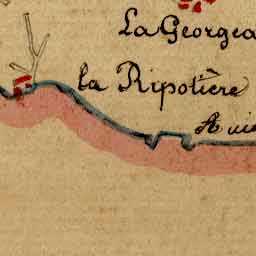 La Georgea
la Ripotière
A vie